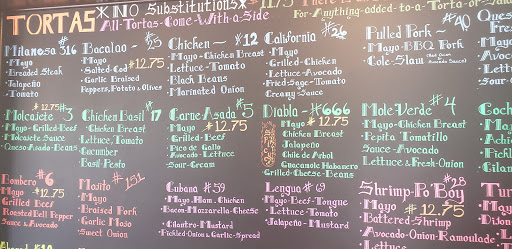 TORTAS *NO Substitutions*
All-Tortas-Come-With-a-Side
$1.75 There is an
For-Anything-added-to-a Torta or Salad
Milanesa #316
•Mayo
•Breaded Steak
•Jalapeño
•Tomato
Bacalao~ #25
•Mayo
•Salted Cod $12.75
•Garlic Braised
Peppers, Potato & Olives
Chicken~ #12
•Mayo-Chicken Breast
•Lettuce-Tomato
•Black Beans
•Marinated Onion
California #26
•Mayo
•Grilled-Chicken
•Lettuce-Avocado
•Fried-Jalapeño
Creamy
Pulled Pork~ #40
•Mayo-BBQ Pork
•Cole-Slaw
$12.75
Molcajete #3
•Mayo-Grilled-Beef
•Molcajete Sauce
•Queso-Asado-Beans
Chicken Basil #17
•Mayo-Chicken Breast
Lettuce, Tomato
Cucumber
Basil-Pesto
Carne Asada #5
•Mayo $12.75
•Grilled-Beef
•Pico de Gallo
•Avocado-Lettuce
•Sour-Cream
Diabla~ #666
•Mayo #12.75
Chicken Breast
Jalapeño
Chile de Arbol
Guacamole Habanero
•Grilled-Cheese-Beans
Mole Verde #4
•Mayo-Chicken Breast
•Pepita Tomatillo
Sauce-Avocado
Lettuce & Fresh-Onion
Bombero #6
Mayo $12.75
Grilled Beef
Roasted Bell Pepper
Sauce & Avocado
Masito #151
•Mayo
•Braised Pork
•Garlic Mojo
•Sweet Onion
Cubana #59
•Mayo, Ham, Chicken
•Bacon-Mozzarella-Cheese
•Cilantro-Mustard
•Pickled-Onion & Garlic-Spread
Lengua #69
•Mayo-Beef-Tongue
•Lettuce-Tomato
•Jalapeño-Mustard
Shrimp-Po'Boy #28
•Mayo #12.75
•Battered-Shrimp
•Avocado-Onion-Ramoulade
•Lettuce-Tomato